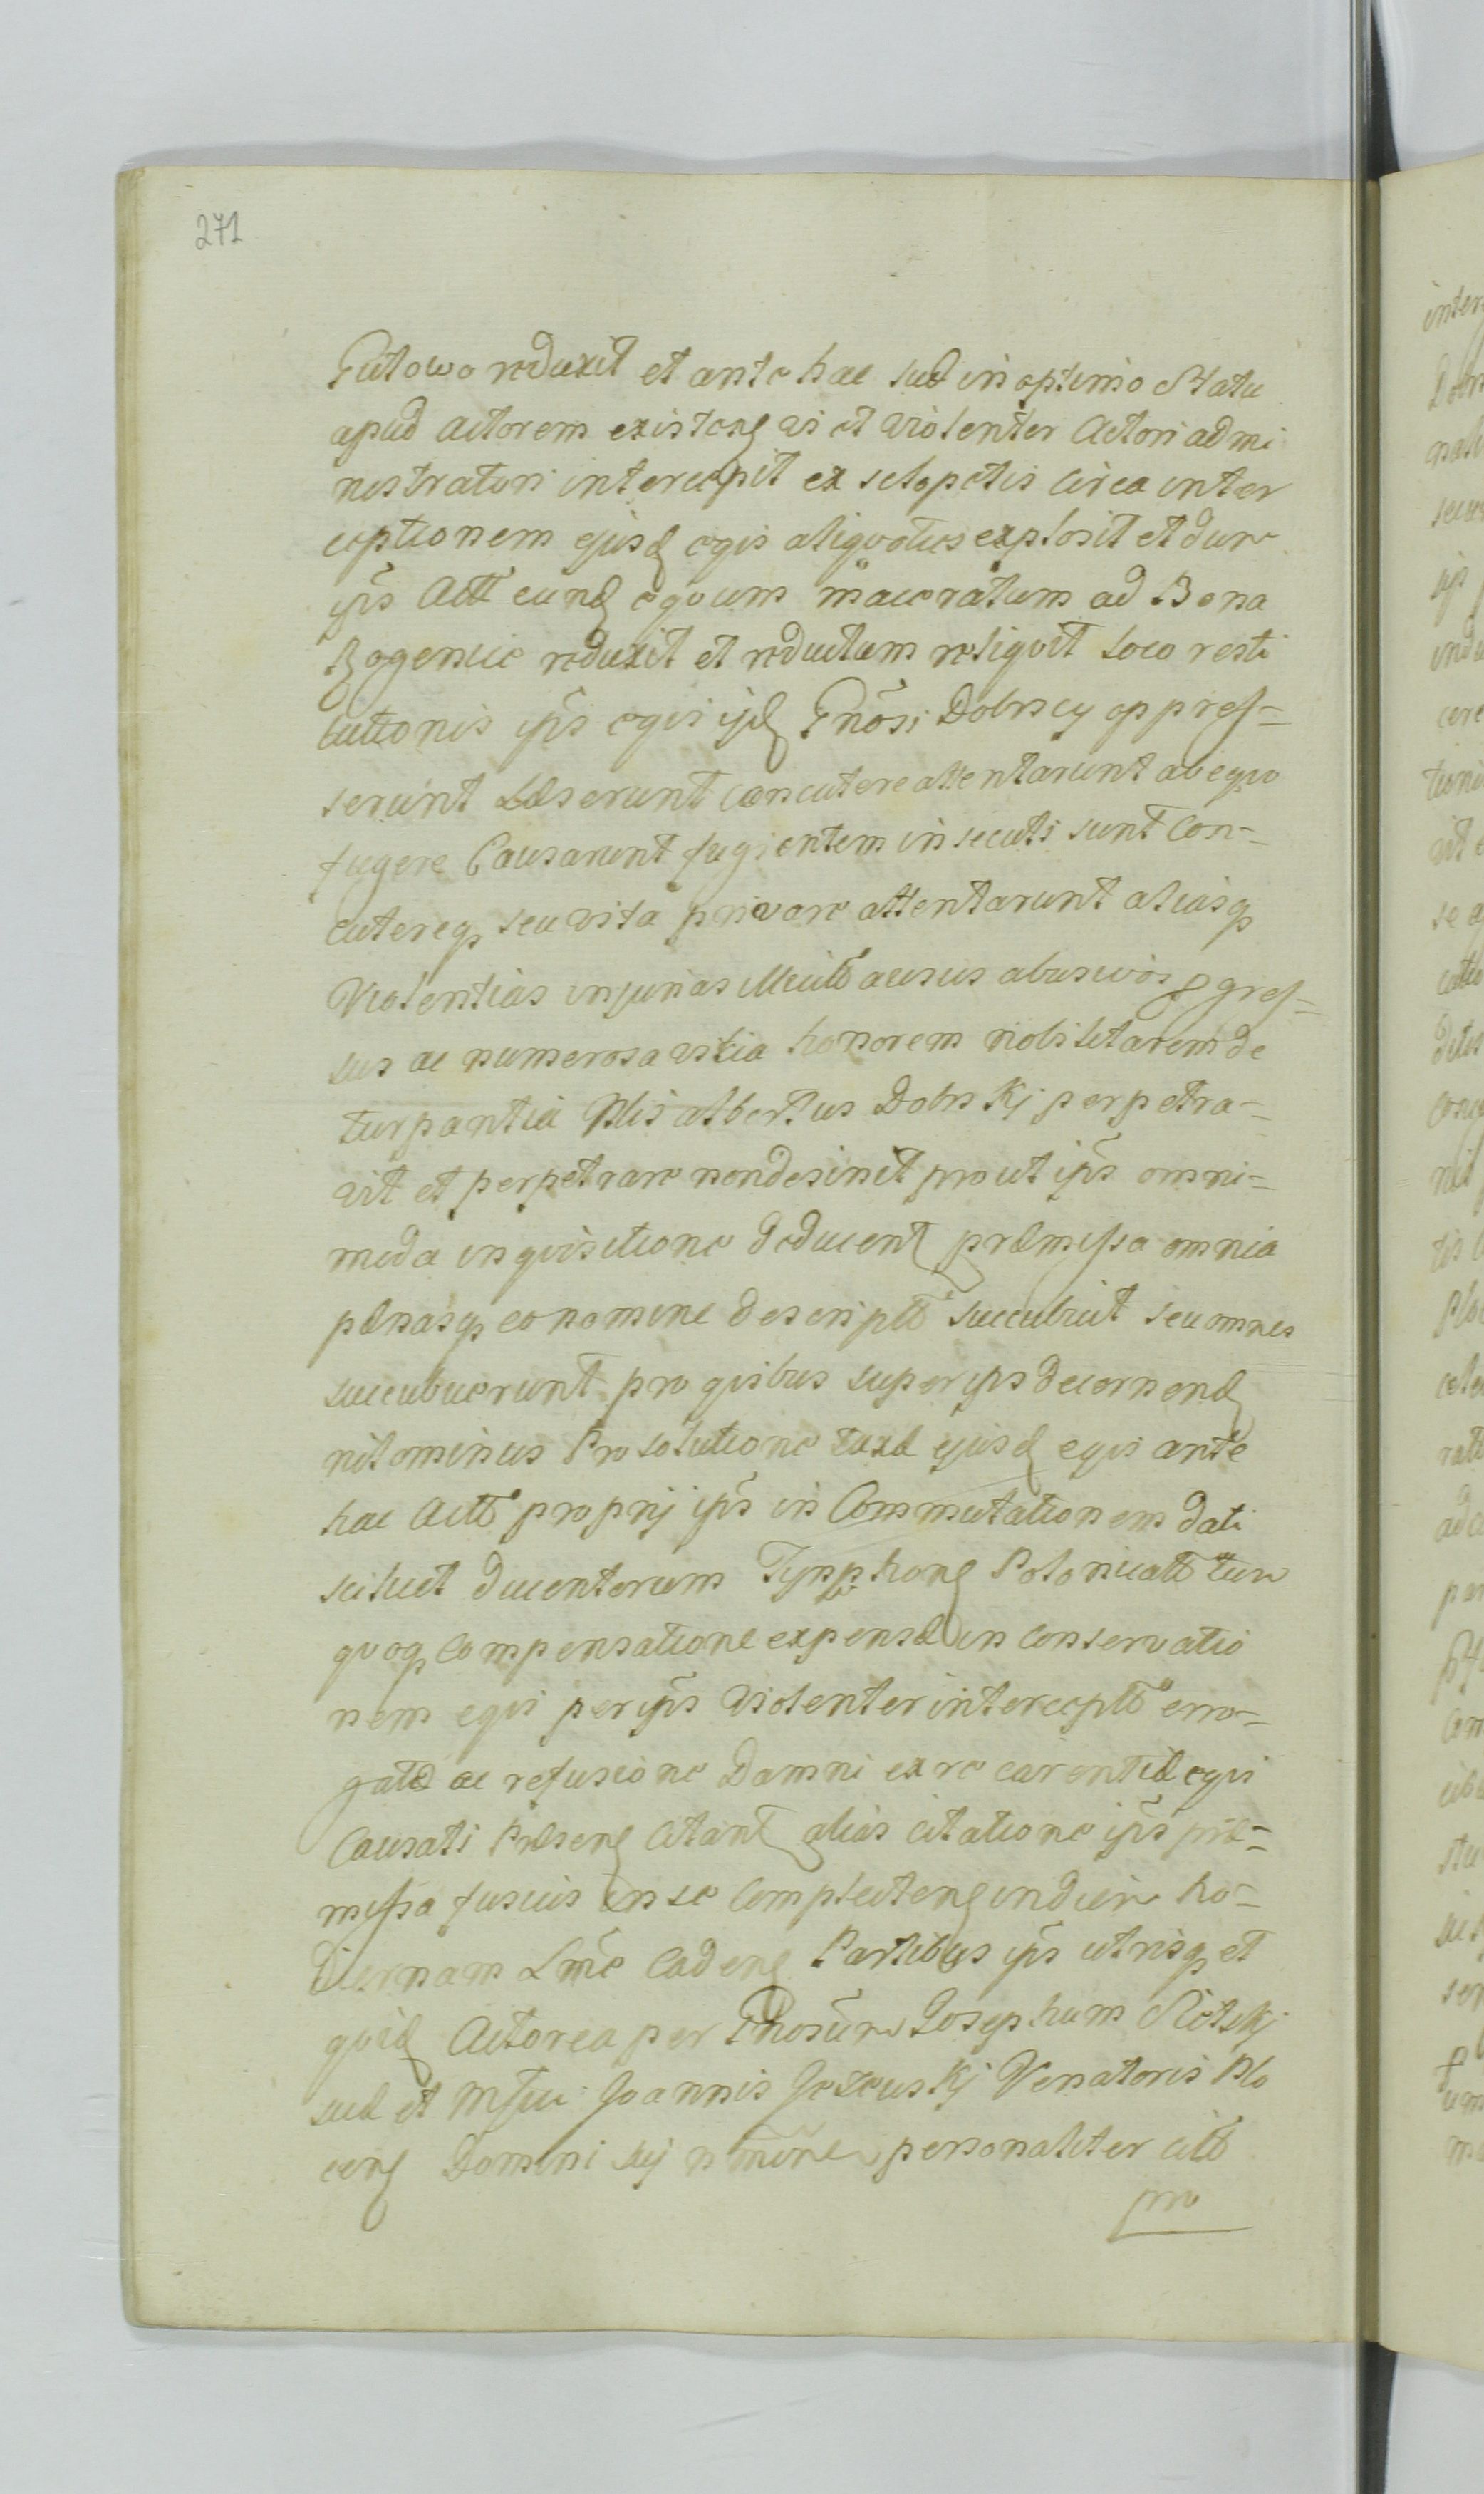 271
Gutowo reduxit et ante hac suae in optimo Statu
apud Actorem existen vi et violenter Actori admi
nistratori intercepit ex sclopetis circa inter
ceptionem ejusd eqvi aliqvoties explosit et dure
ips Actt eund eqvum maceratum ad Bona
Bogenice reduxit et reductum reliqvit loco resti
tutionis ips eqvi ijd Gnosi Dobrscy oppres=
serunt Laeserunt concutere attentarunt ab eqvo
fugere Causarunt fugientem insecuti sunt Con=
cutereq seu vita privare attentarunt aliasq
Violentias injurias ac usus abusivos gres=
sus ac numerosa vitia honorem nobilitarem de
turpantia Nlis Albertus Dobrskj perpetra=
vit et perpetrare non desinit prout ips omni=
moda inqvisitione deducent praemissa omnia
paenasq eo nomine descriptt succubuit seu omnes
succubuerunt pro qvibus super ips decernend
nilominus Pro solutione taxae ejusd eqvi ante
hac Actt proprij ips in Commutationem dati
scilicet ducentorum Tynphon Polonicatt tum
qvoq Compensatione expensae in conservatio
nem eqvi per ips violenter interceptt erro=
gatae ac refusione Damni ex re carentiae eqvi
Causati Praesen Citant alias citatione ips prae=
missa fusius in se Complecten indiem ho=
diernam Lme Caden Partibus ips utrisq et
qvid Actorea per Gnosum Josephum
suae et Joannis Venatoris Plo
cen Domini sui nomine personaliter citt
pro